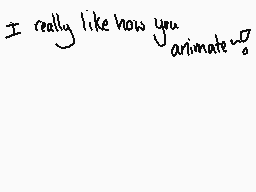 I really like how you
animate~!